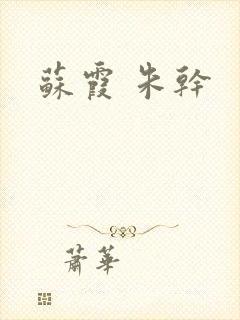 蘇霞 朱幹
蕭華